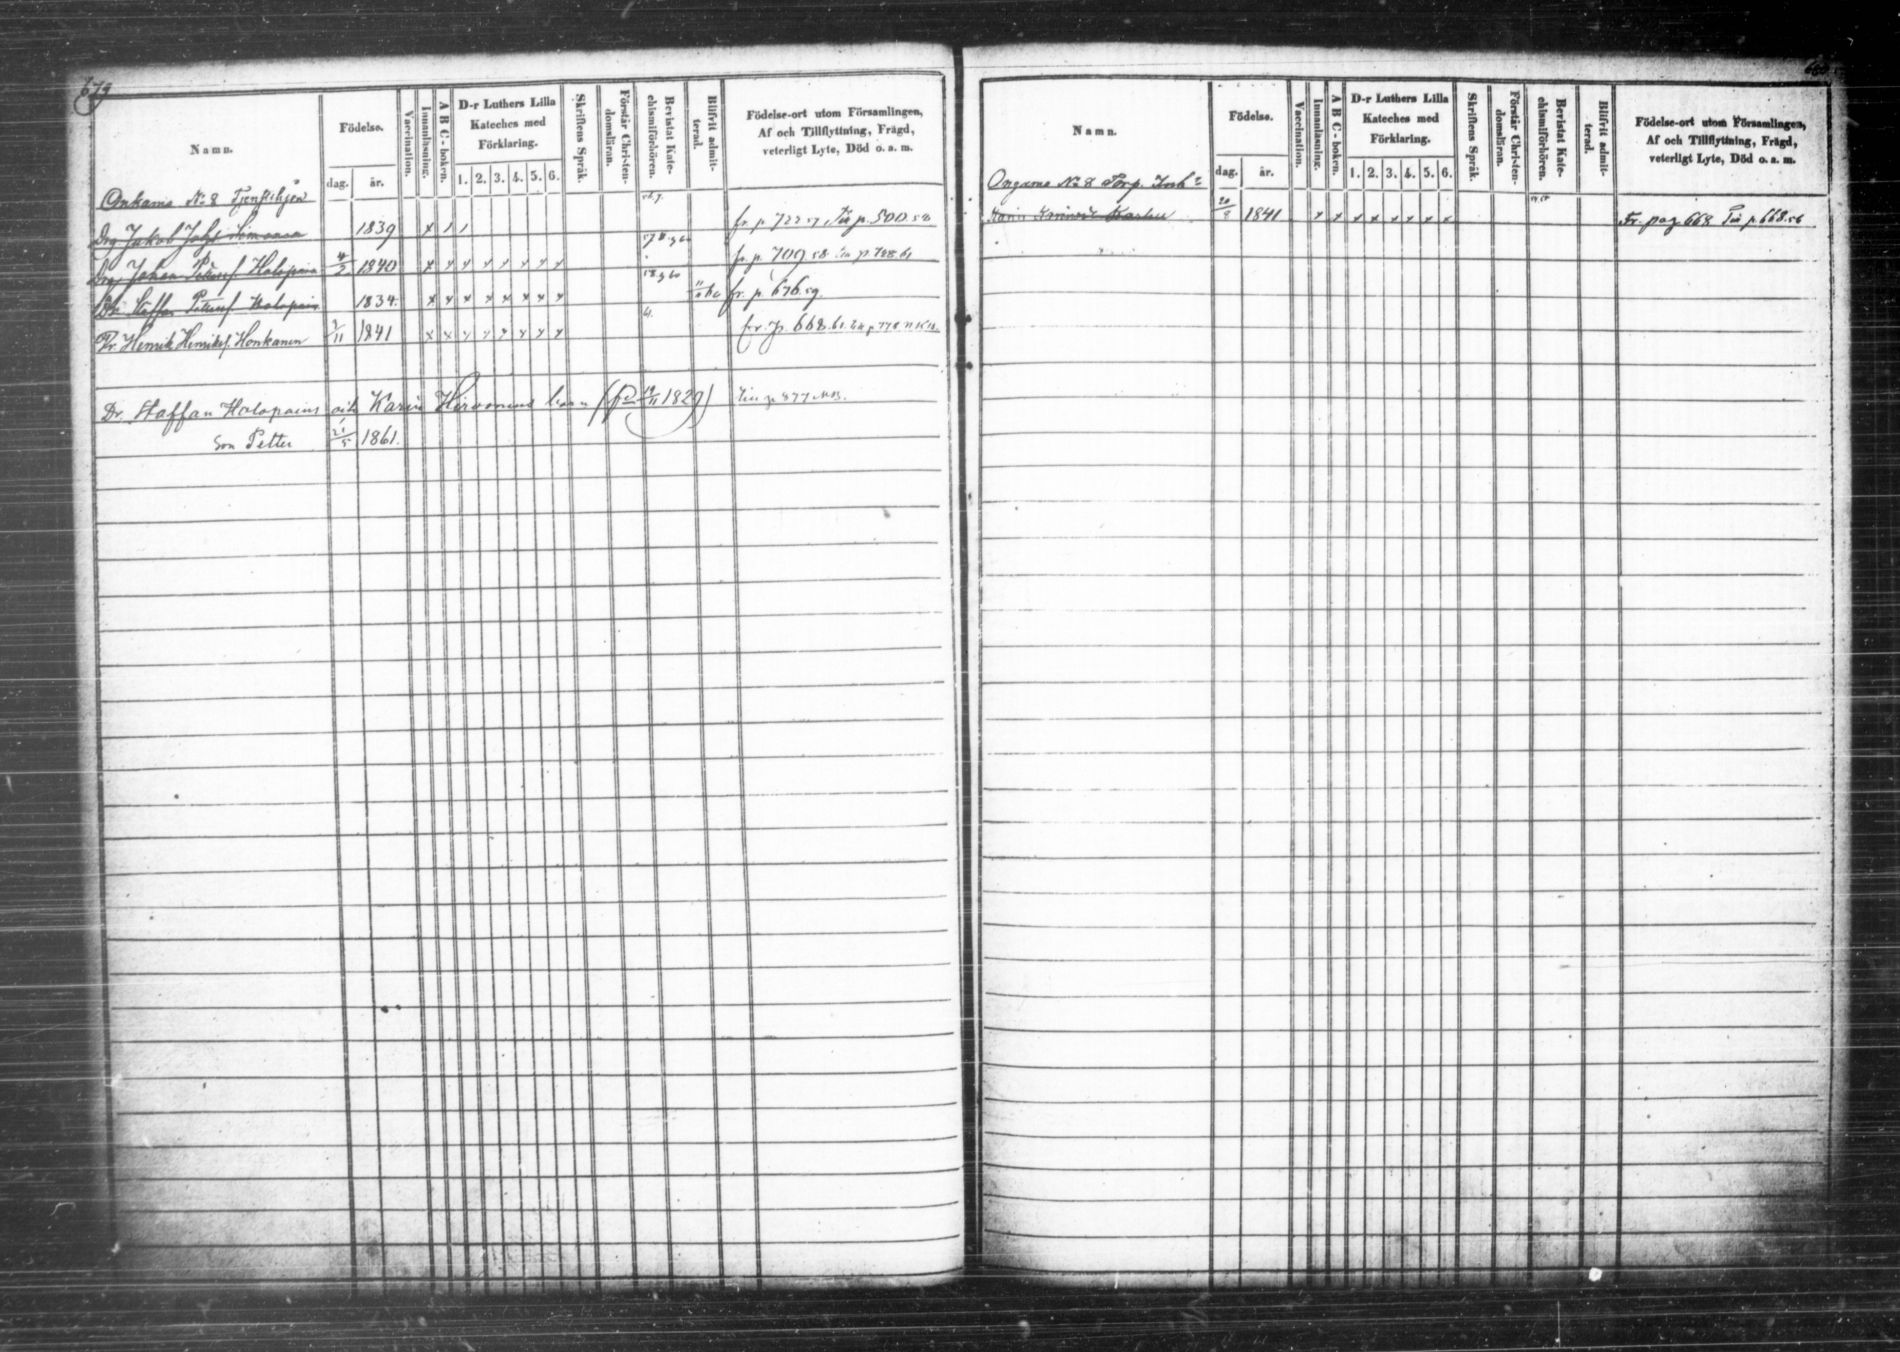 679
Namn.
Födelse.
dag. år.
Vaccination.
Innanläsning.
A B C-boken.
D-r Luthers Lilla
Kateches med
Förklaring.
1. 2. 3. 4. 5. 6.
Skriftens Språk.
Förstår Christen-
domsläran.
Bevistat Kate-
chismiförhören.
Blifvit admit-
terad.
Födelse-ort utom Församlingen,
Af och Tillflyttning, Frägd,
veterligt Lyte, Död o. a. m.
Onkamo No 8 Tjenstehjon
Drg Jakob 1839 x 1 1 fr. p. 722 57, Til p. 500 58
Drg Johan Pettersf Holopain 4/2 1840 x x x x x x x x fr. p. 709 58 Til p. 788 61
Dr. Staffan Pettersf Holopain 1834. x x x x x x x x fr. p. 676. 59.
Dr. Henrik Henriksf. Honkanen 1841 x x x x x x x x 61. fr. p. 668. 61.
Dr. Staffan Holopains och Karin Hirvonens barn (fd 1829) Til p 877
Son Petter 21/5 1861.
Namn.
Födelse.
dag. år.
Vaccination.
Innanläsning.
A B C-boken.
D-r Luthers Lilla
Kateches med
Förklaring.
1. 2. 3. 4. 5. 6.
Skriftens Språk.
Förstår Christen-
domsläran.
Bevistat Kate-
chismiförhören.
Blifvit admit-
terad.
Födelse-ort utom Församlingen,
Af och Tillflyttning, Frägd,
veterligt Lyte, Död o. a. m.
Ongamo No 8 Torp. Inh:
20/8 1841 x x x x x x x x Fr. pag 668 Til p. 668. 56